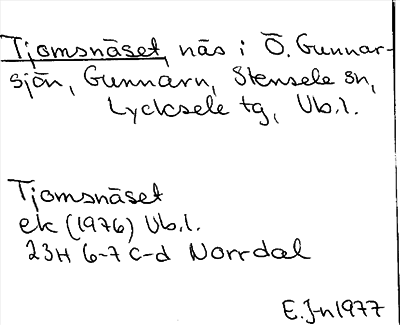 Tjomsnäset, näs i Ö. Gunnar-
sjön, Gunnarn, Stensele sn,
Lycksele tg, Vb.l.
Tjomsnäset
ek (1976) Vb.l.
23H 6-7 c-d Norrdal
E.J-n 1977